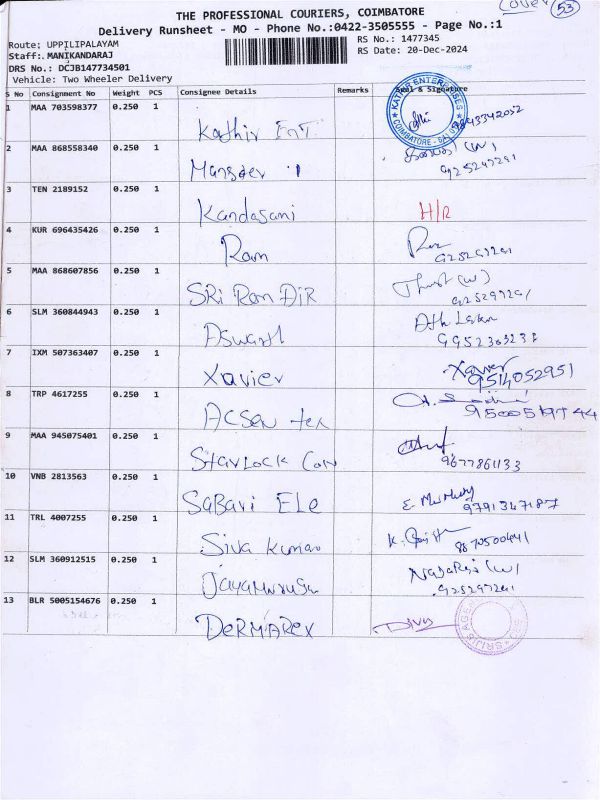 Cover 53
THE PROFESSIONAL COURIERS, COIMBATORE
Delivery Runsheet - MO - Phone No.:0422-3505555 - Page No.:1
Route: UPPILIPALAYAM
Staff:. MANIKANDARAJ
DRS No.: DCJB147734501
Vehicle: Two Wheeler Delivery
RS No.: 1477345
RS Date: 20-Dec-2024
S No Consignment No Weight PCS Consignee Details Remarks Seal & Signature
1 MAA 703598377 0.250 1 Kathir Ent.
KATHIR ENTERPRISES
COIMBATORE
2 MAA 868558340 0.250 1
925297291
3 TEN 2189152 0.250 1 Kandasani H/R
4 KUR 696435426 0.250 1 Ram
925297291
5 MAA 868607856 0.250 1 SRi Ram DiR
925297291
6 SLM 360844943 0.250 1 Aswath
7 IXM 507363407 0.250 1 Xavier Xavier
9514052951
8 TRP 4617255 0.250 1 ACSEN tex
9 MAA 945075401 0.250 1 StarLOCK CON
9677861133
10 VNB 2813563 0.250 1 SaBari ELe
9791347187
11 TRL 4007255 0.250 1 Siva kumar
12 SLM 360912515 0.250 1 Jayamurugan
925297291
13 BLR 5005154676 0.250 1 DeRMAREX